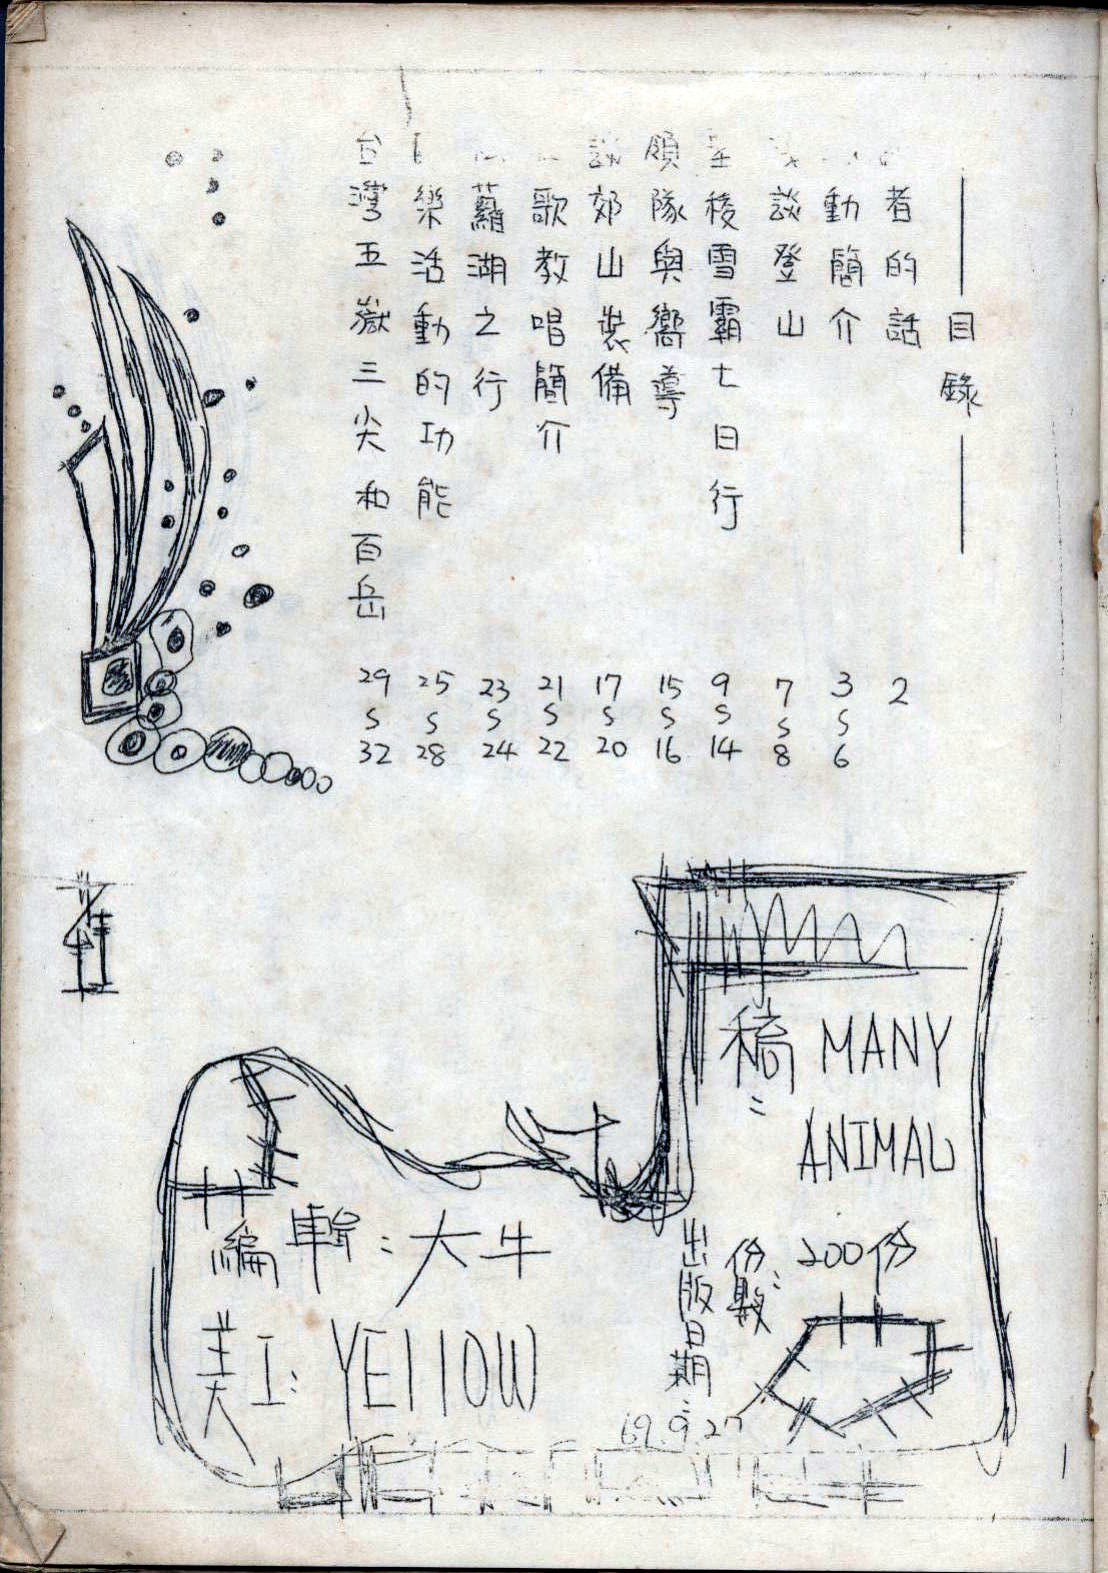 目錄
者的話 2
動簡介 3 S 6
談登山 7 S 8
稜雪霸七日行 9 S 14
領隊與嚮導 15 S 16
談郊山裝備 17 S 20
歌教唱簡介 21 S 22
蘿湖之行 23 S 24
樂活動的功能 25 S 28
台灣五嶽三尖和百岳 29 S 32
稿: MANY ANIMAL
份數: 200份
出版日期: 69 9 27
編輯: 大牛
美工: YEllOW
1